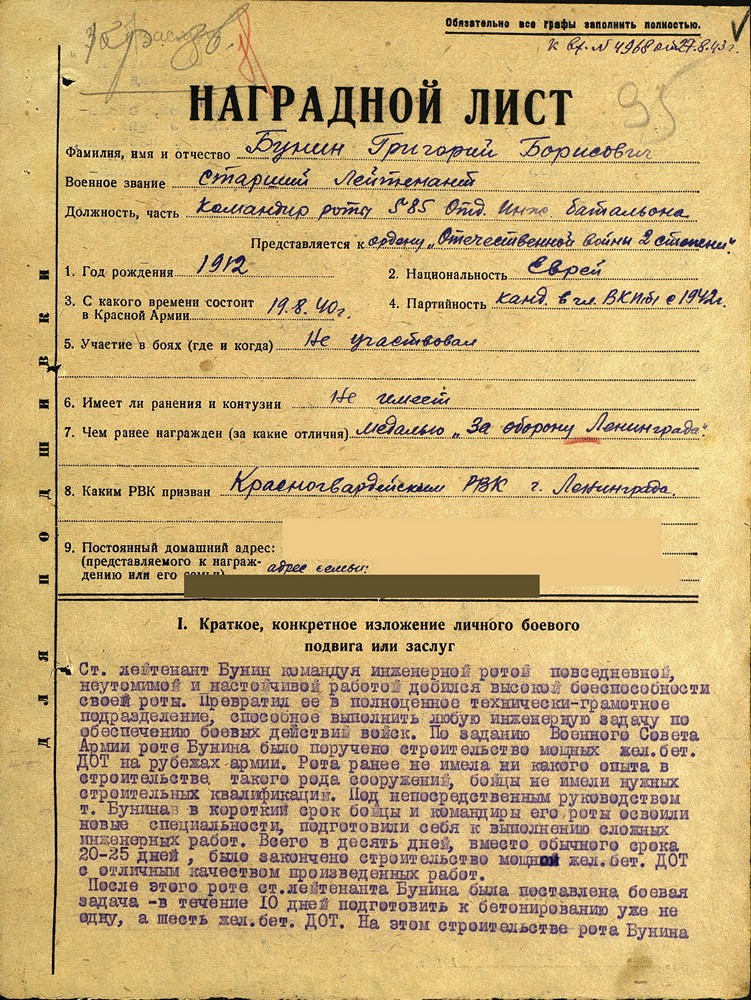 Обязательно все графы заполнить полностью.
К вх. № 4968 от 27.8.43 г.
95
НАГРАДНОЙ ЛИСТ
Фамилия, имя и отчество Бунин Григорий Борисович
Военное звание старший лейтенант
Должность, часть Командир роты 585 Отд. Инж. батальона
Представляется к ордену „Отечественной войны 2 степени".
1. Год рождения 1912
2. Национальность Еврей
3. С какого времени состоит
в Красной Армии 19.8.40г.
4. Партийность канд. в чл. ВКП/б с 1942г.
5. Участие в боях (где и когда) Не участвовал
6. Имеет ли ранения и контузии Не имеет
7. Чем ранее награжден (за какие отличия) медалью „За оборону Ленинграда"
8. Каким РВК призван Красногвардейским РВК г. Ленинграда.
9. Постоянный домашний адрес:
(представляемого к награж-
дению или его семьи) адрес семьи:
ДЛЯ ПОДШИВКИ
I. Краткое, конкретное изложение личного боевого
подвига или заслуг
Ст. лейтенант Бунин командуя инженерной ротой повседневной,
неутомимой и настойчивой работой добился высокой боеспособности
своей роты. Превратил ее в полноценное технически-грамотное
подразделение, способное выполнить любую инженерную задачу по
обеспечению боевых действий войск. По заданию Военного Совета
Армии роте Бунина было поручено строительство мощных жел.бет.
ДОТ на рубежах армии. Рота ранее не имела ни какого опыта в
строительстве такого рода сооружений, бойцы не имели нужных
строительных квалификации. Под непосредственным руководством
т. Бунина в короткий срок бойцы и командиры его роты освоили
новые специальности, подготовили себя к выполнению сложных
инженерных работ. Всего в десять дней, вместо обычного срока
20-25 дней, было закончено строительство мощной жел.бет. ДОТ
с отличным качеством произведенных работ.
После этого роте ст.лейтенанта Бунина была поставлена боевая
задача -в течение 10 дней подготовить к бетонированию уже не
одну, а шесть жел.бет. ДОТ. На этом строительстве рота Бунина